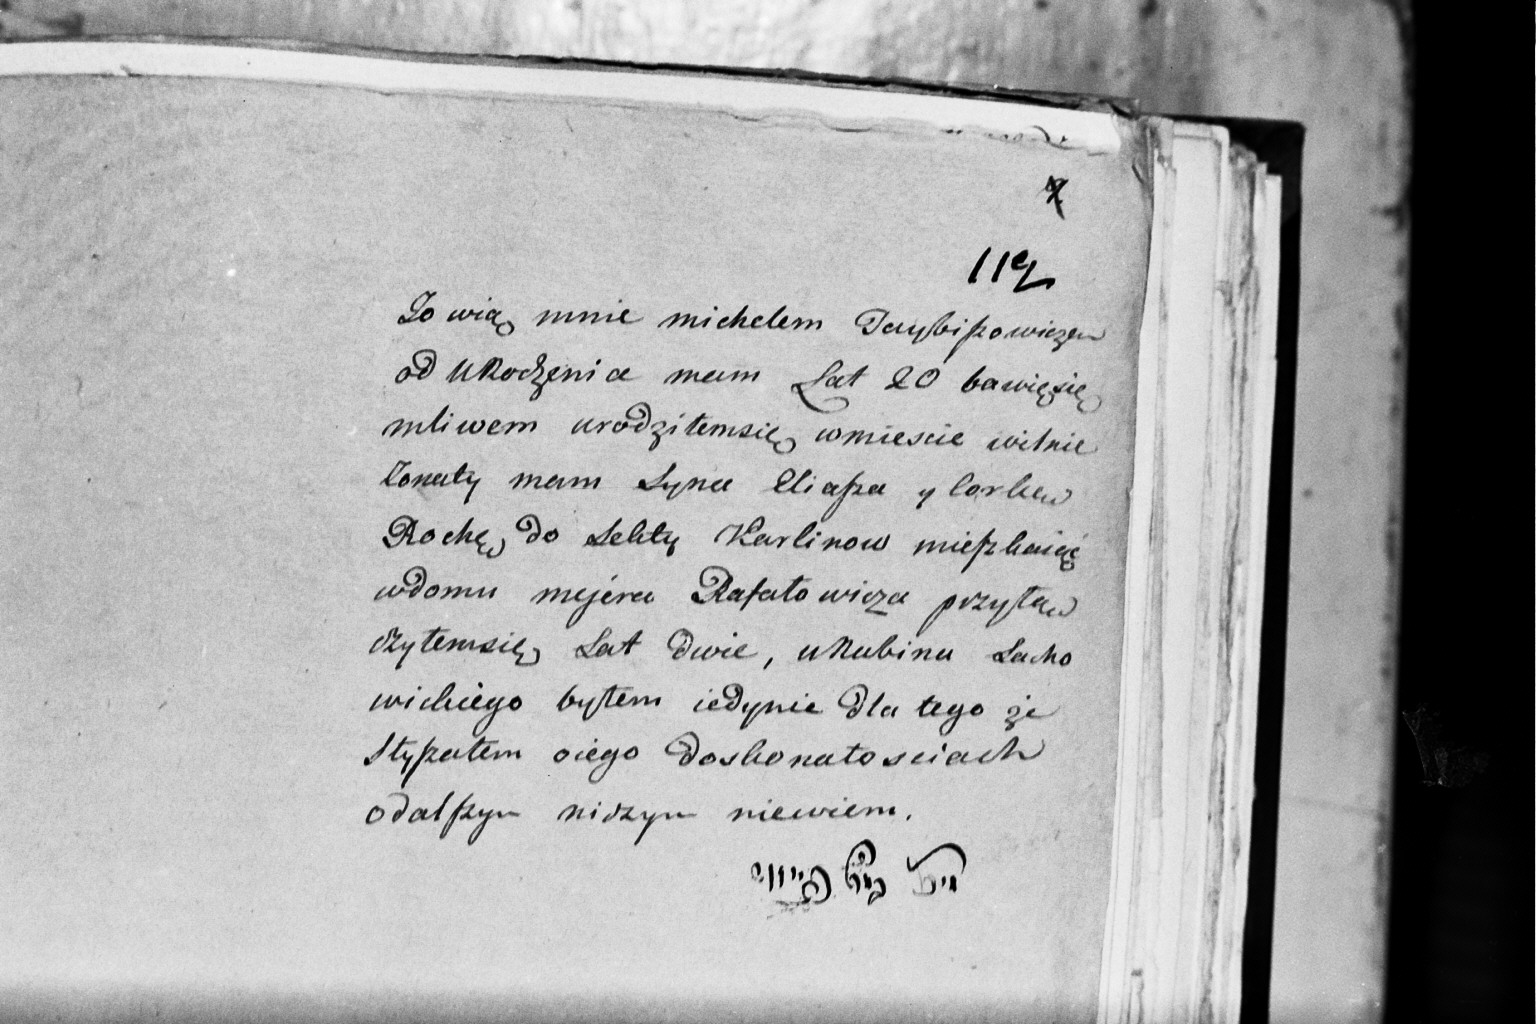 112
Zowią mnie michelem Leybiszowiczem
od uRodzenia mam Lat 20 bawięsię
mliwem urodziłemsię wmiescie wilnie
Zonaty mam Syna Eliasza y Corkę
Rochę do Sekty Karlinow mieszkaiąć
wdomu mejera Rafałowicza przyłą
czyłemsię Lat dwie, uRubina Lacho
wickiego byłem iedynie dla tego że
Słyszałem oiego doskonałosciach
odalszym niczym niewiem.